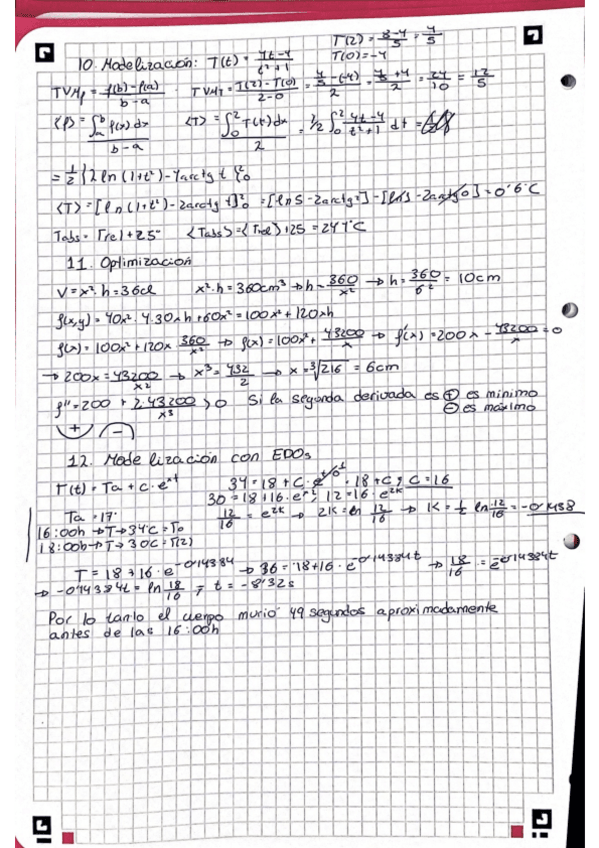 10. Modelización: T(t) = 4t-4 / t²+1   T(2) = 8-4/5 = 4/5
T(0) = -4
TVMf = f(b)-f(a) / b-a . TVMT = T(2)-T(0) / 2-0 = 4/5-(-4) / 2 = 4/5+4 / 2 = 24/10 = 12/5
<f> = ∫ab f(x)dx / b-a   <T> = ∫02 T(t)dx / 2 = 1/2 ∫02 4t-4 / t²+1 dt =
= 1/2 {2 ln(1+t²) - 4arctg t}20
<T> = [ln(1+t²) - 2arctg t]20 = [ln5 - 2arctg2] - [ln1 - 2arctg0] = -0'6°C
Tabs = Trel + 25°   <Tabs> = <Trel> + 25 = 24'4°C
11. Optimización
V = x²·h = 36cl   x²·h = 360cm³ → h = 360/x² → h = 360/6² = 10cm
f(x,y) = 40x² + 4·30xh + 60x² = 100x² + 120xh
f(x) = 100x² + 120x 360/x² → f(x) = 100x² + 43200/x → f'(x) = 200x - 43200/x² = 0
→ 200x = 43200/x² → x³ = 432/2 → x = ³√216 = 6cm
f'' = 200 + 2·43200/x³ > 0   Si la segunda derivada es ⊕ es mínimo
⊖ es máximo
12. Modelización con EDOs
T(t) = Ta + C·e^kt   34 = 18 + C·e^0 = 18 + C, C = 16
30 = 18 + 16·e^k2, 12 = 16·e^2k
Ta = 17   12/16 = e^2k → 2K = ln 12/16 → K = 1/2 ln 12/16 = -0'1438
16:00h → T → 34°C = T0
18:00h → T → 30C = T(2)
T = 18 + 16·e^-0'14384 → 36 = 18 + 16·e^-0'14384t → 18/16 = e^-0'14384t
→ -0'14384t = ln 18/16, t = -8'32s
Por lo tanto el cuerpo murió 49 segundos aproximadamente
antes de las 16:00h